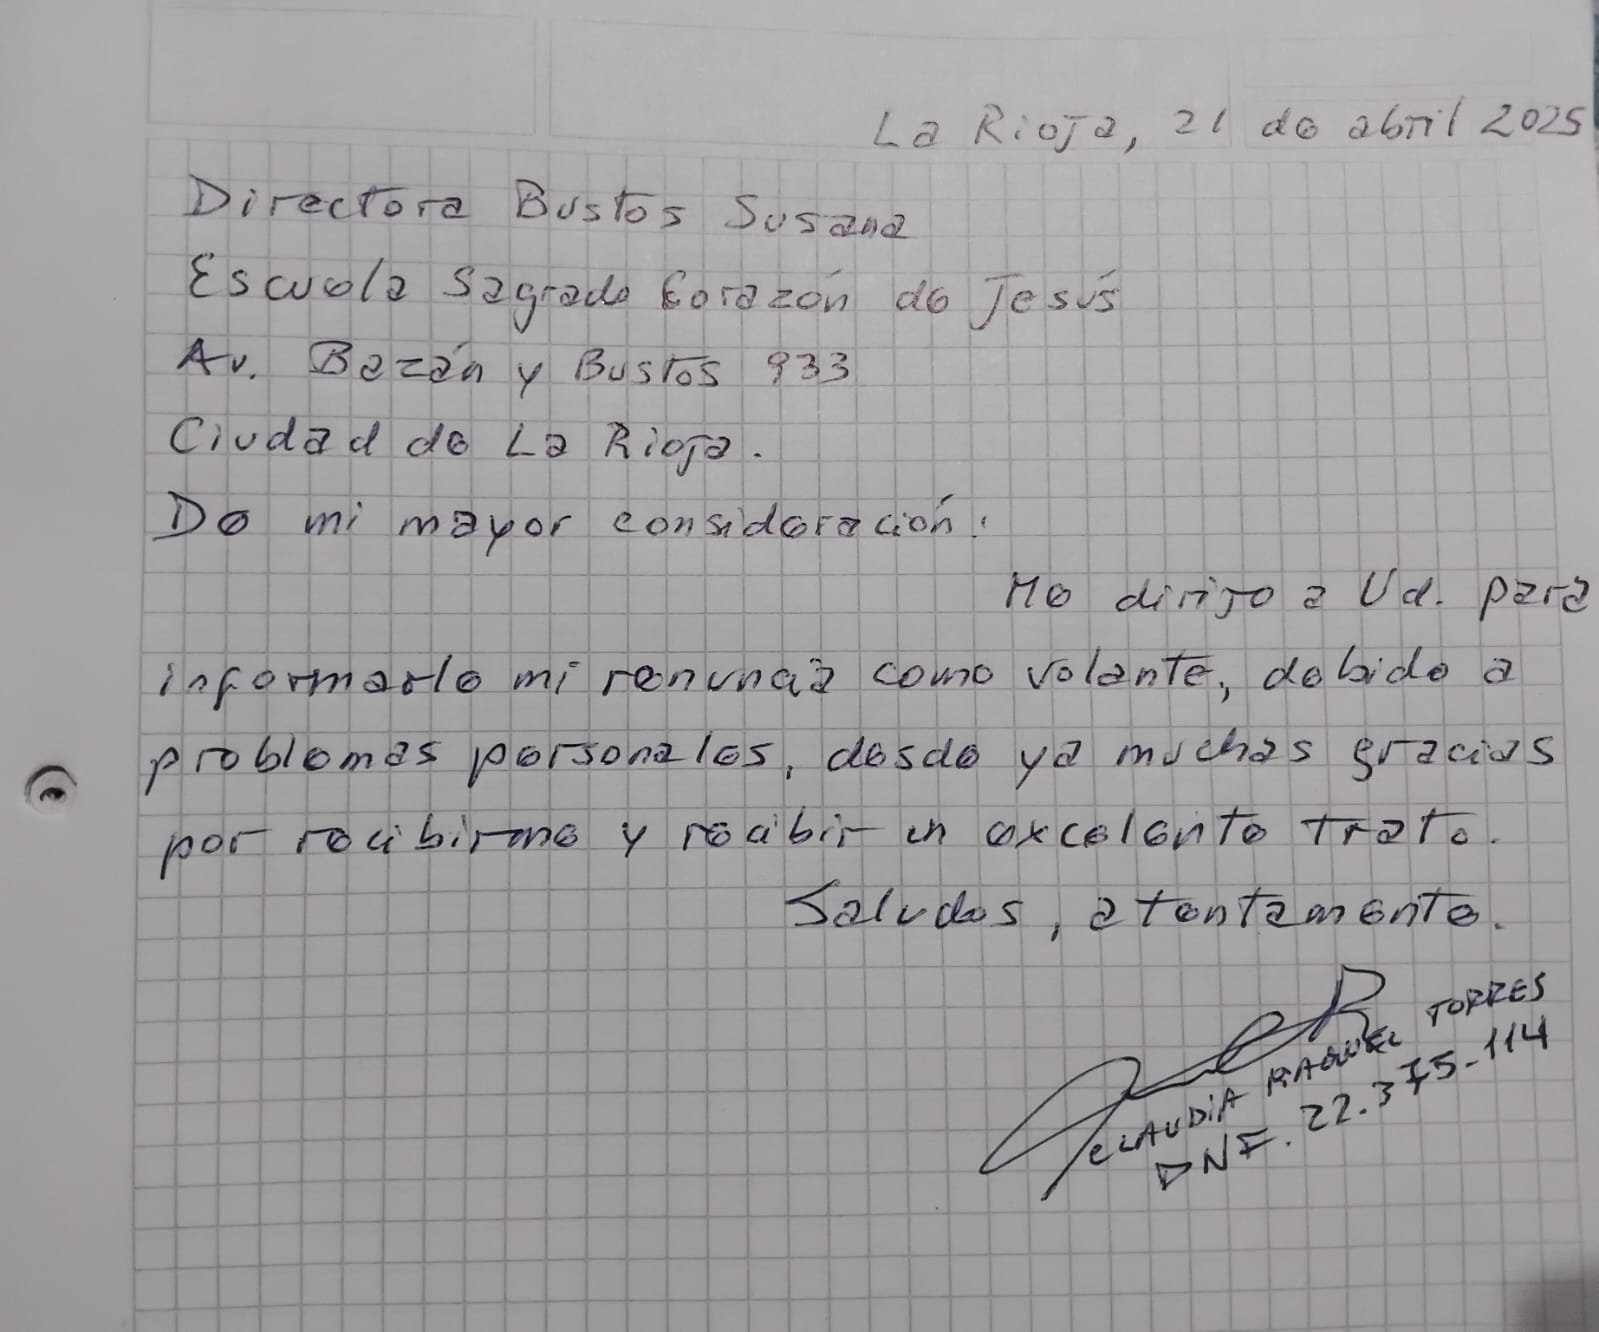 La Rioja, 21 de abril 2025
Directora Bustos Susana
Escuela Sagrado Corazón de Jesús
Av. Bazán y Bustos 933
Ciudad de La Rioja.
De mi mayor consideración:
Me dirijo a Ud. para
informarle mi renuncia como volante, debido a
problemas personales, desde ya muchas gracias
por recibirme y recibir un excelente trato.
Saludos, atentamente.
CLAUDIA RAQUEL TORRES
DNI. 22.375.114